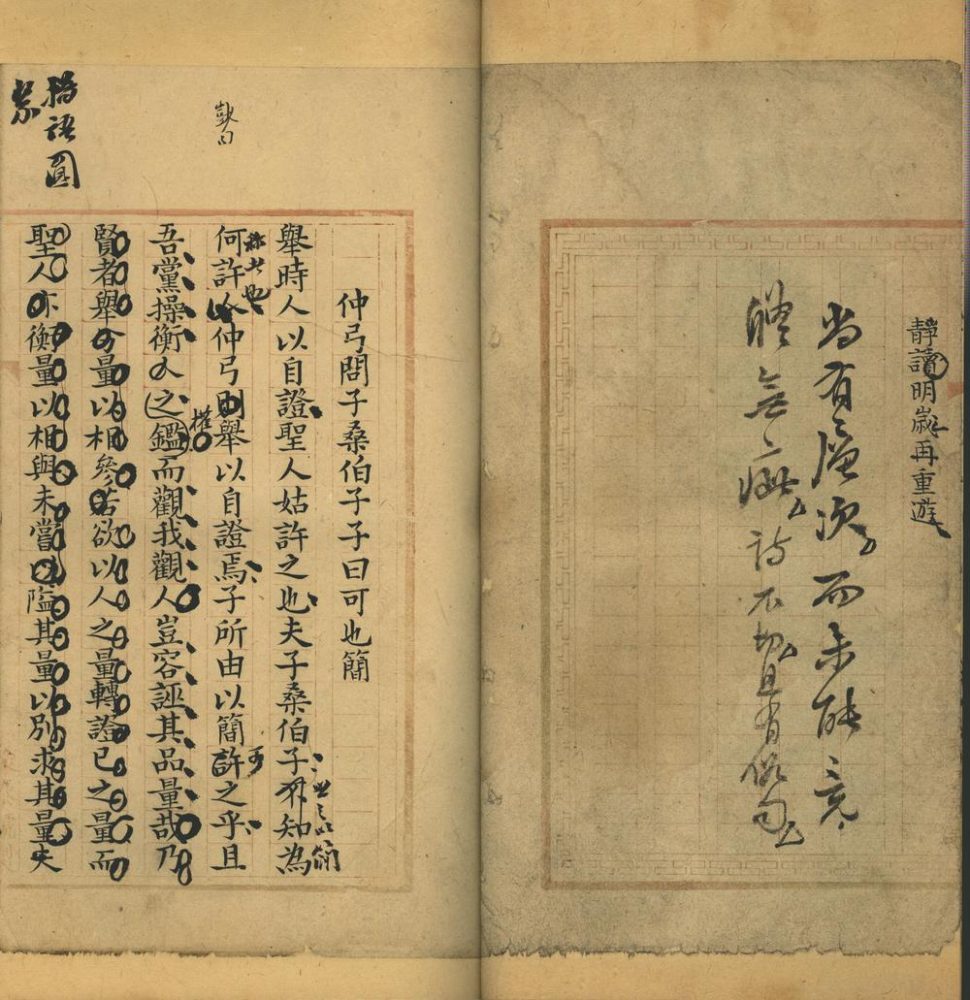 靜讀明歲再重遊
尚有層次而未能竟
體無疵詩不切且有俗句
仲弓問子桑伯子子曰可也簡
舉時人以自證聖人姑許之也夫子桑伯子不知為
世之以簡
何許人仲弓則舉以自證焉子所由以簡許之乎且
吾黨操衡人之鑑而觀我觀人豈容誣其品量哉乃
權
賢者舉量以相參若欲以人之量轉證己之量而
聖人亦衡量以相與未嘗以隘其量以別求其量夫
語圓